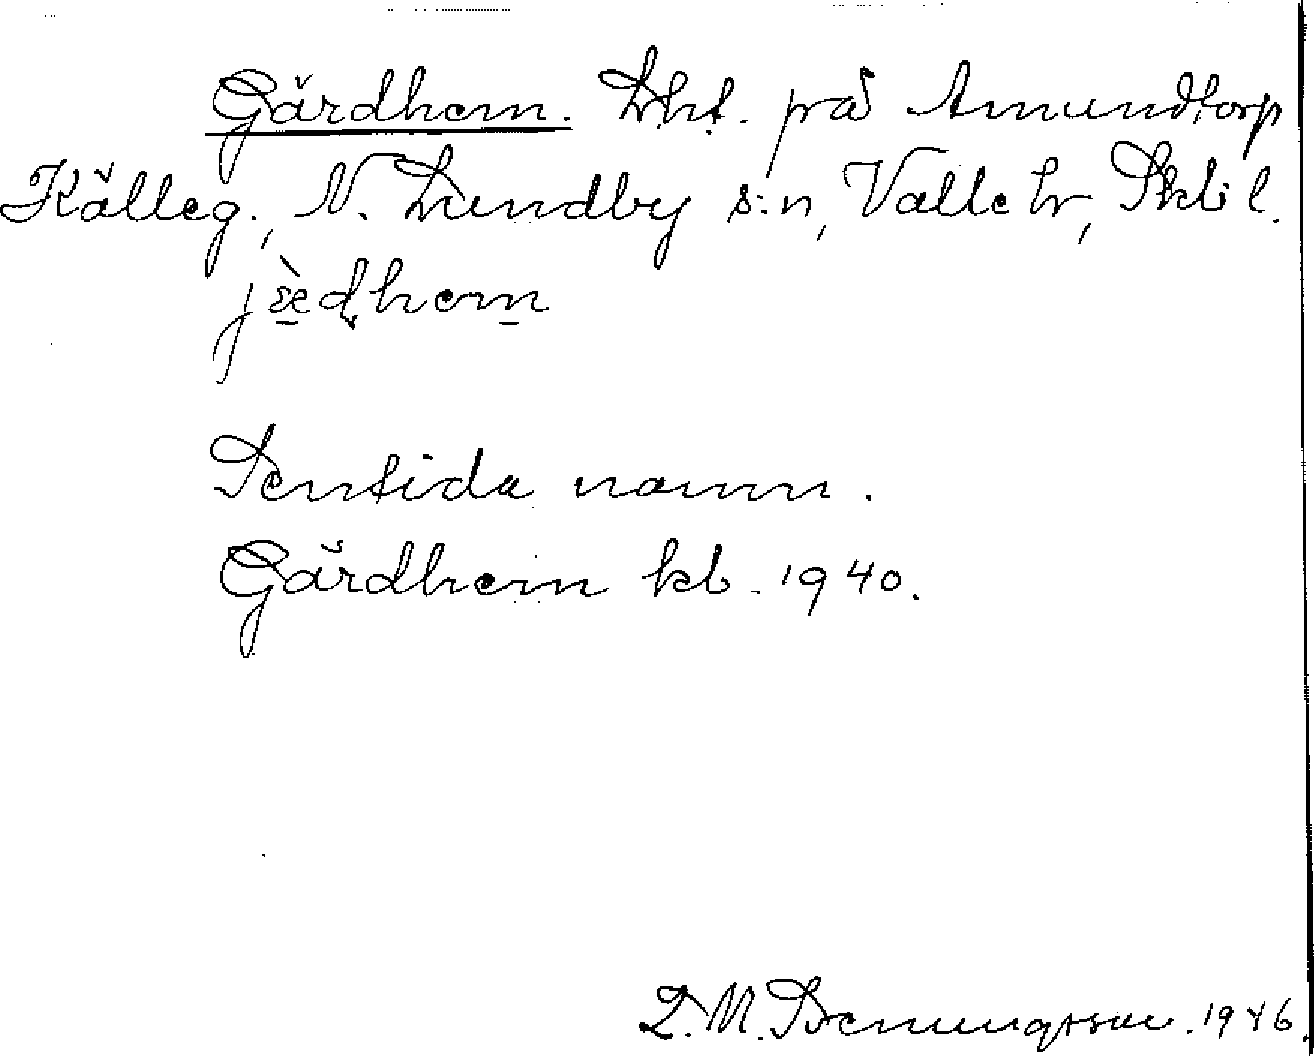 Gärdhem. Lht. på Amundtorp
Källeg., N. Lundby s:n, Valle hr, Skb l.
jæ̀dhem
Sentida namn.
Gärdhem kb. 1940.
1946.